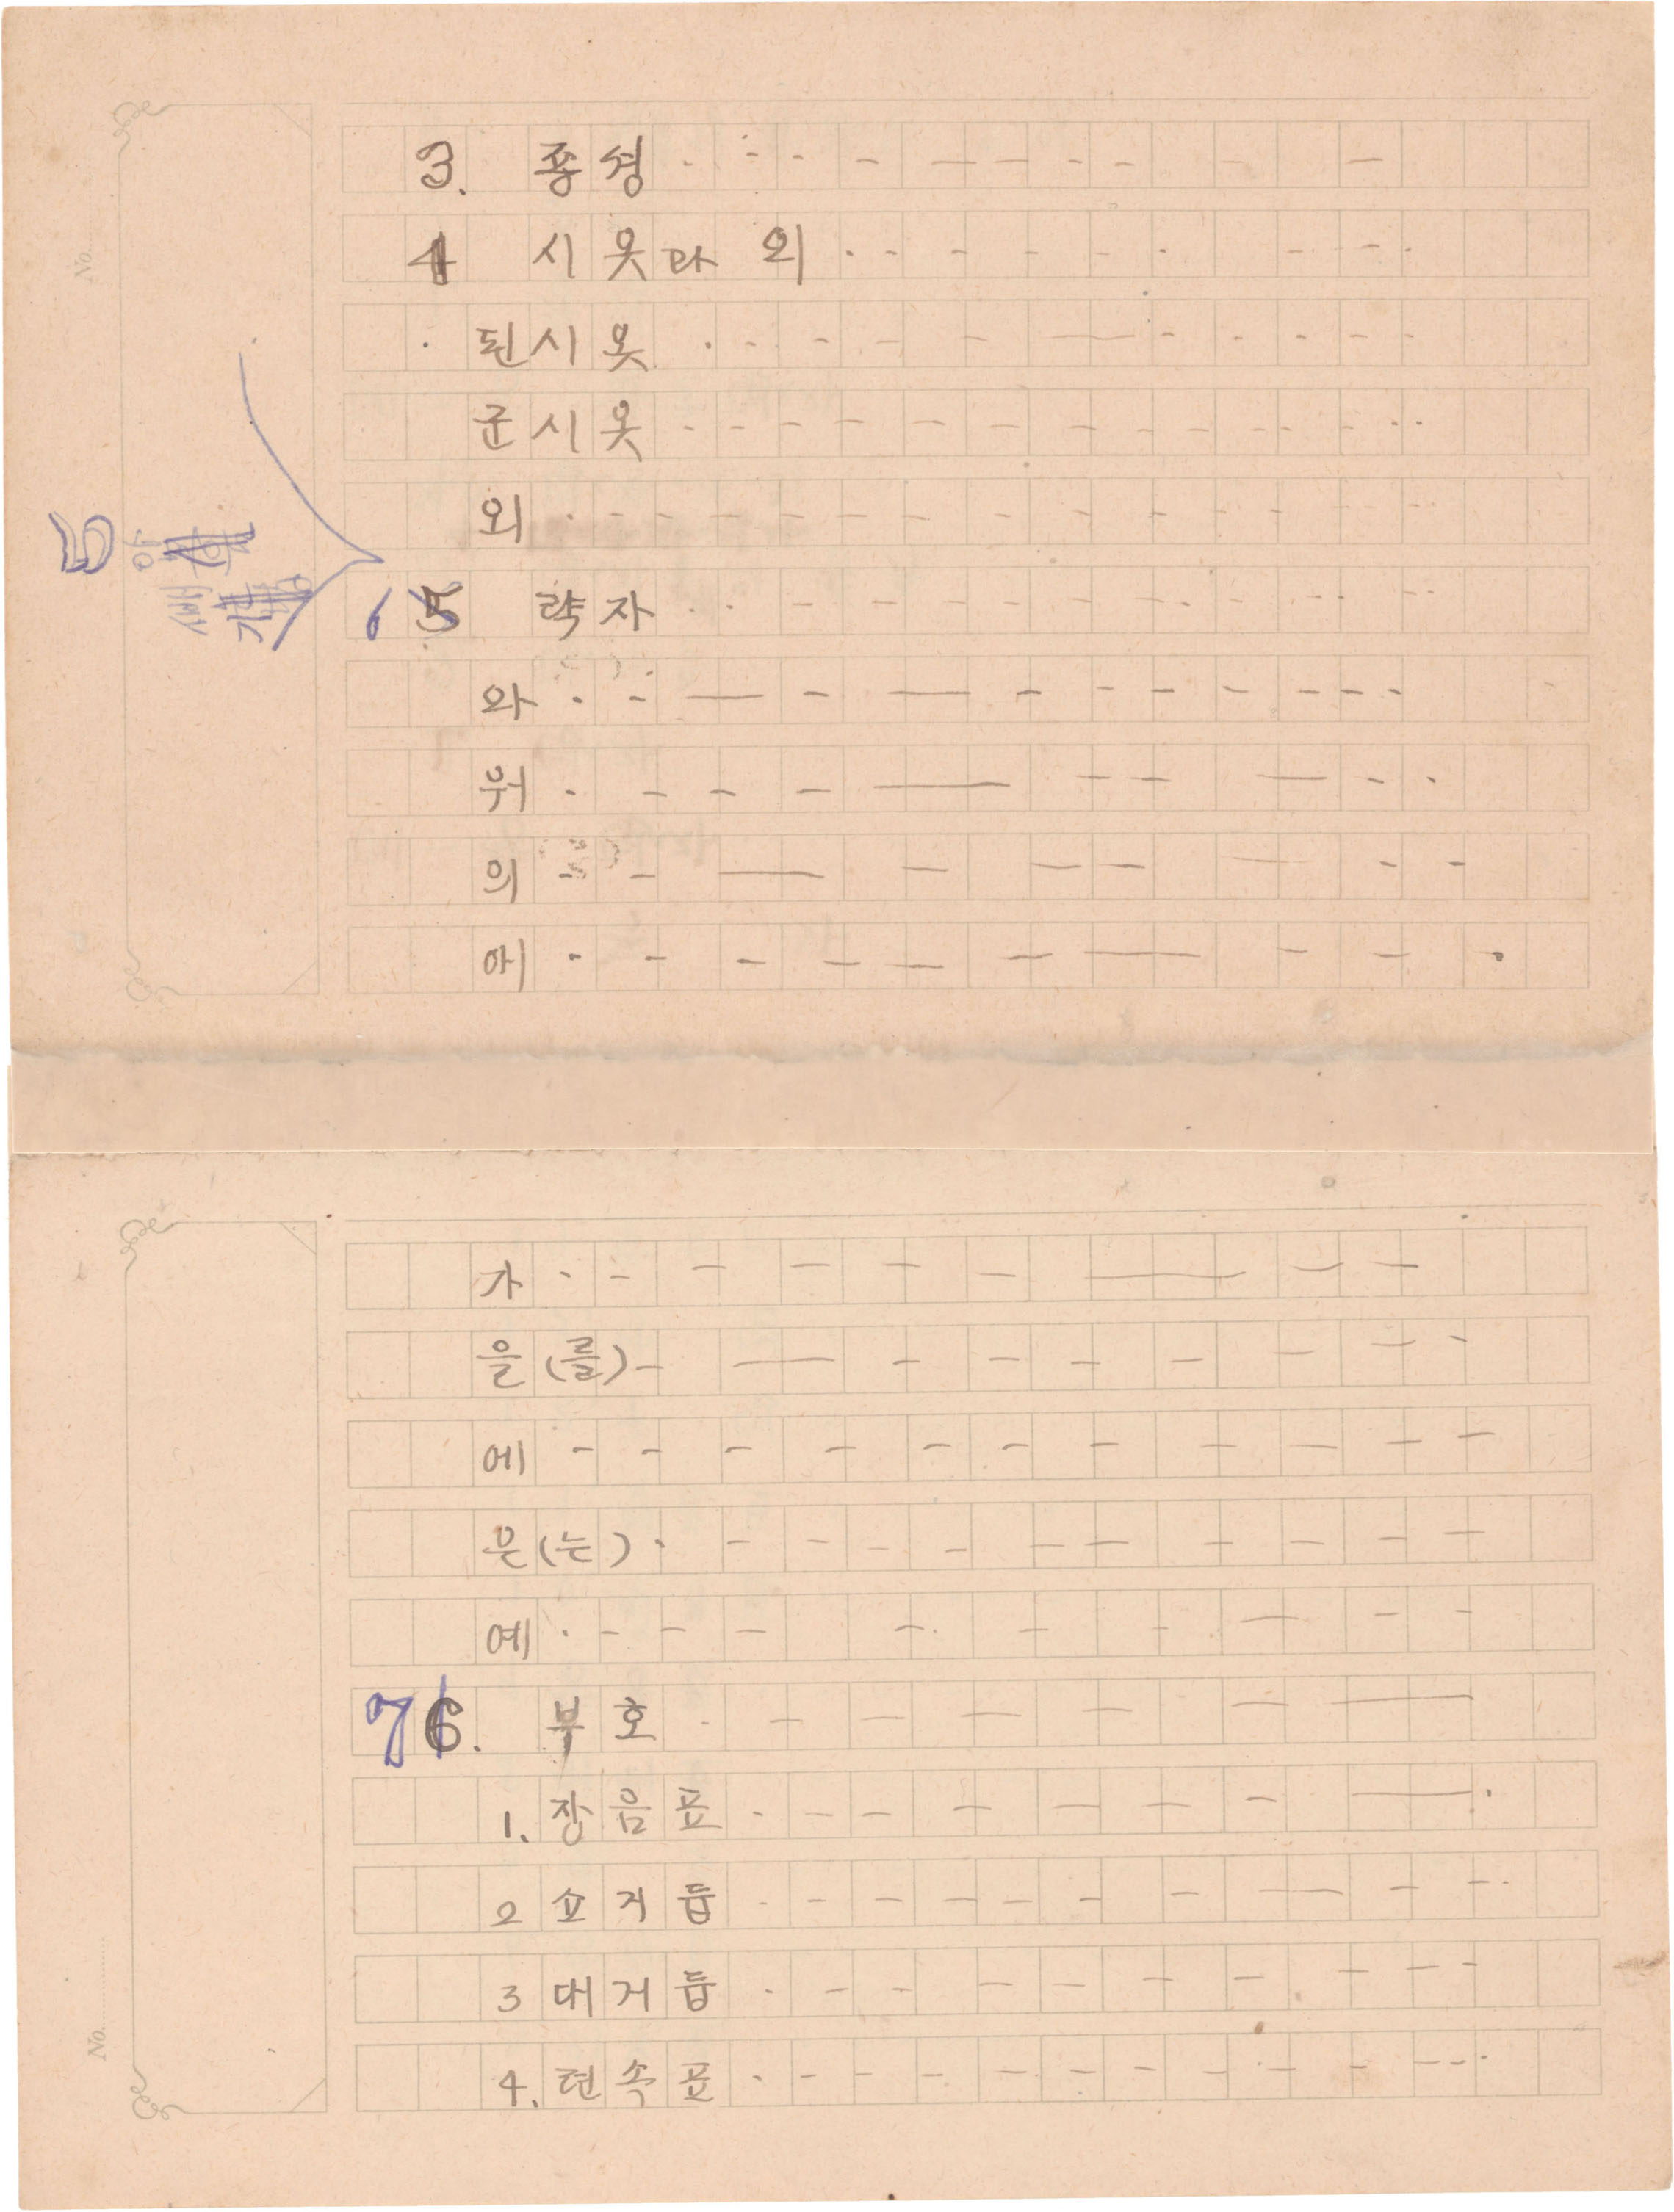 3. 종성
4 시옷과 외
된시옷
군시옷
외
6 5 략자
와
워
의
애
가
을(를)
에
은(는)
예
7 6. 부호
1. 장음표
2 소거듭
3 대거듭
4. 련속표
No.
No.
5